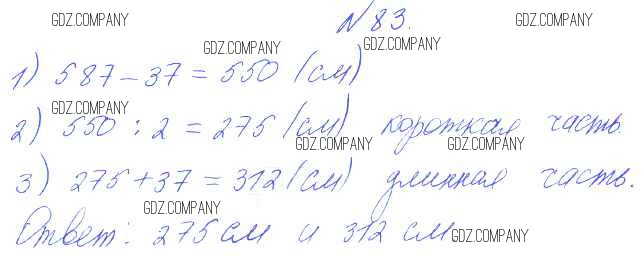 GDZ.COMPANY № 83. GDZ.COMPANY
GDZ.COMPANY GDZ.COMPANY
1) 587 - 37 = 550 (см)
GDZ.COMPANY
2) 550 : 2 = 275 (см) короткая часть.
GDZ.COMPANY GDZ.COMPANY
3) 275 + 37 = 312 (см) длинная часть.
GDZ.COMPANY
Ответ: 275 см и 312 см
GDZ.COMPANY